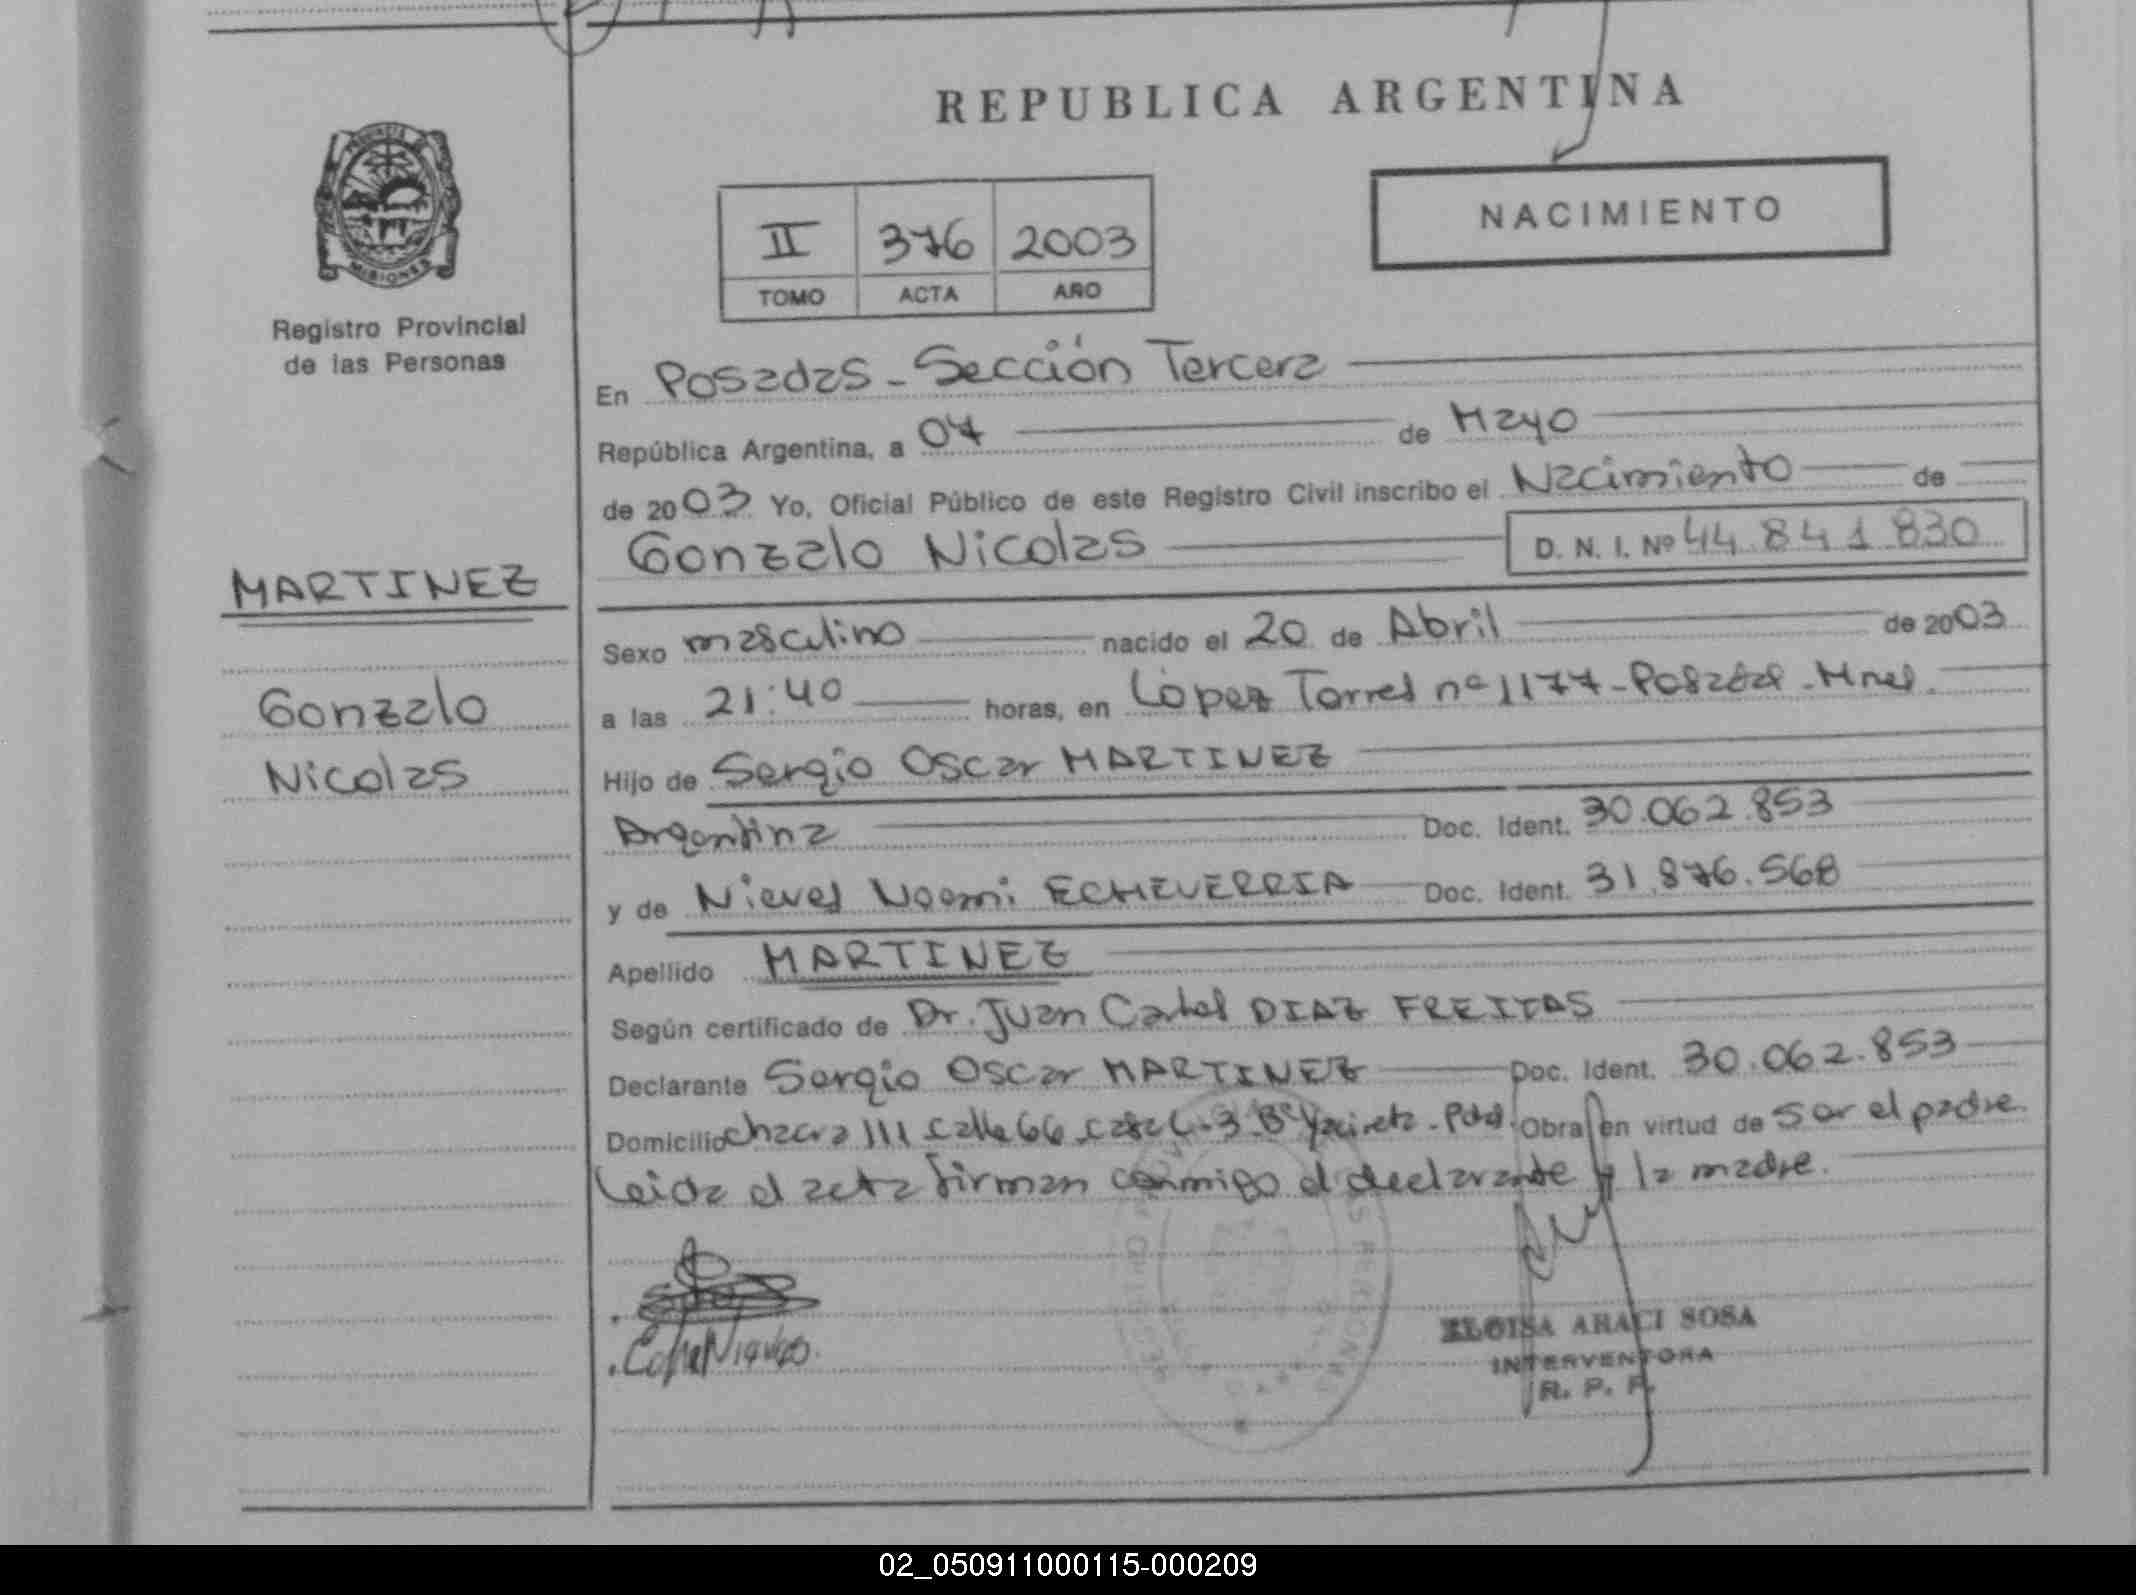 REPUBLICA ARGENTINA
NACIMIENTO
II 376 2003
TOMO ACTA AÑO
MISIONES
Registro Provincial
de las Personas
MARTINEZ
Gonzalo
Nicolas
En Posadas - Sección Tercera
República Argentina, a 07 de Mayo
de 2003 Yo, Oficial Público de este Registro Civil inscribo el Nacimiento de
Gonzalo Nicolas D. N. I. Nº 44.841.830
Sexo masculino nacido el 20 de Abril de 2003
a las 21:40 horas, en López Torres nº 1177 - Posadas - Mnes.
Hijo de Sergio Oscar MARTINEZ
Argentina Doc. Ident. 30.062.853
y de Nieves Noemi ECHEVERRIA Doc. Ident. 31.876.568
Apellido MARTINEZ
Según certificado de Dr. Juan Carlos DIAZ FREITAS
Declarante Sergio Oscar MARTINEZ Doc. Ident. 30.062.853
Domicilio chacra 111 calle 66 casa C-3 Bº Yacireta - Pdas. Obra en virtud de ser el padre.
Leida el acta firman conmigo el declarante y la madre.
ELOISA ARACI SOSA
INTERVENTORA
R. P. P.
02_050911000115-000209